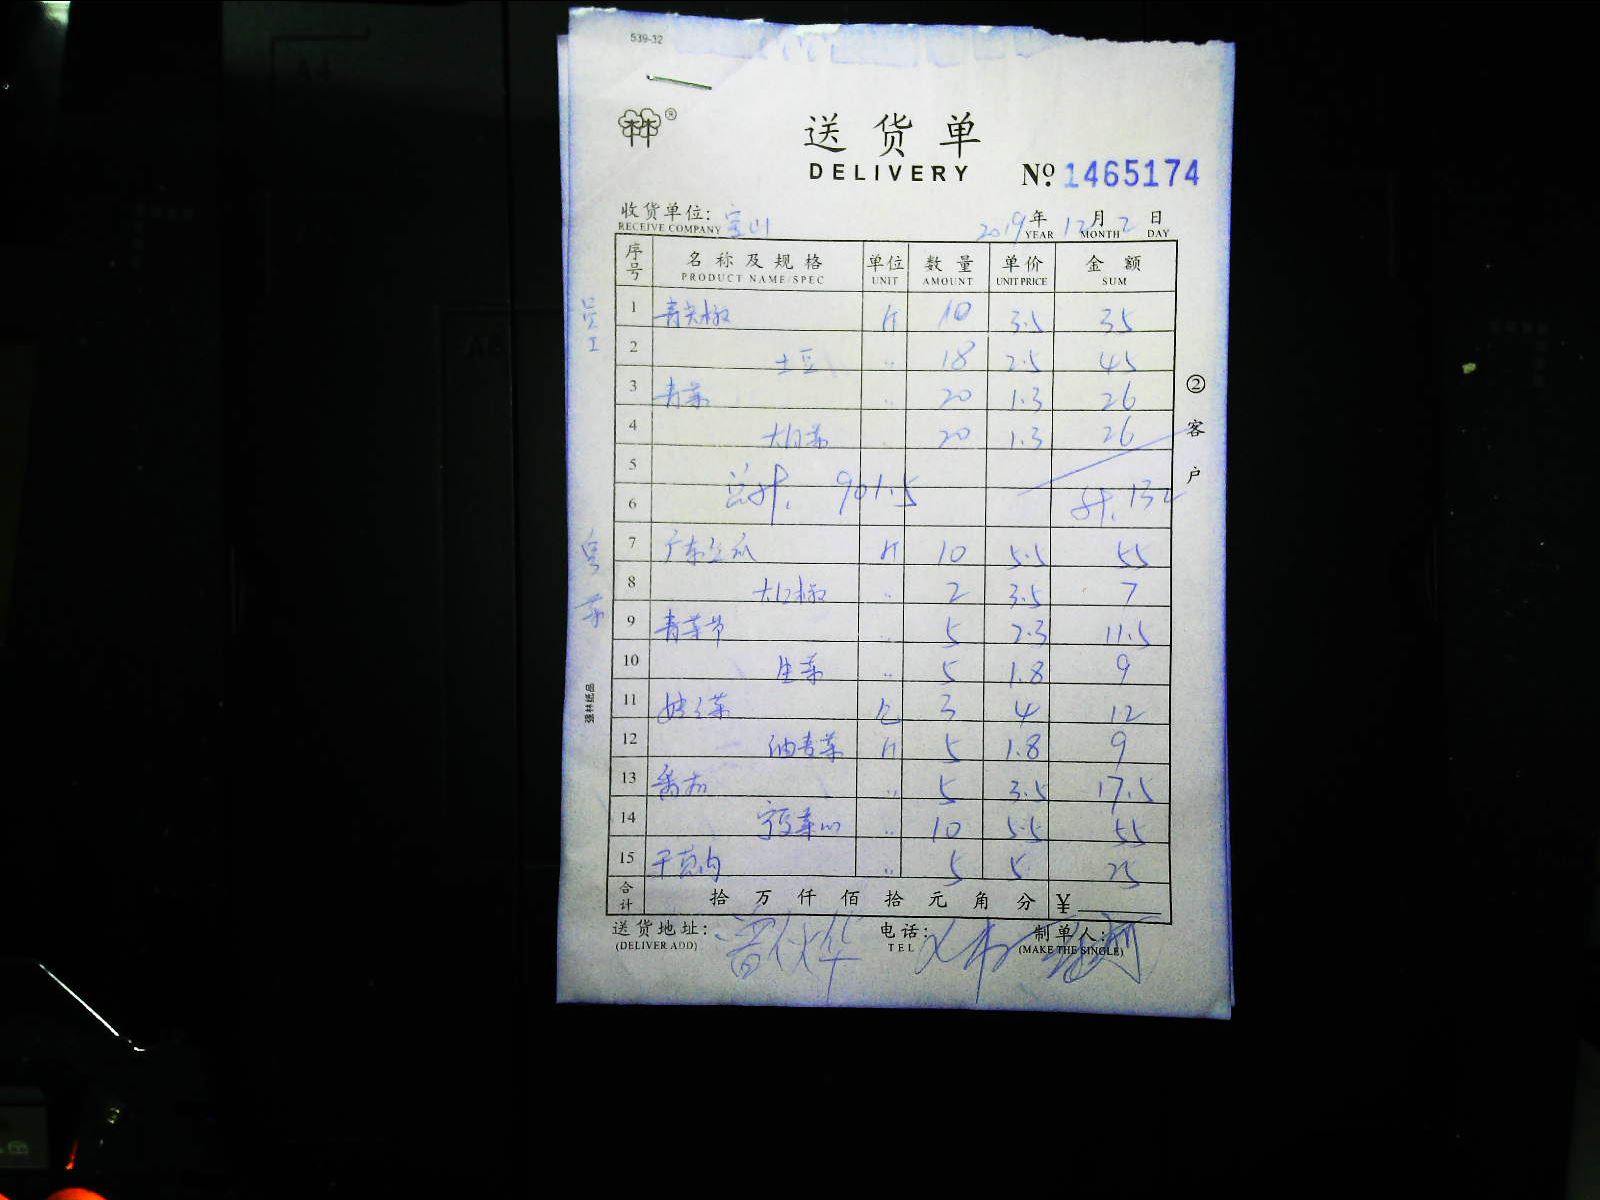 539-32
送货单
DELIVERY
Nº 1465174
收货单位: 宝山 2019年 12月 2日
RECEIVE COMPANY YEAR MONTH DAY
序号 名称及规格 单位 数量 单价 金额
PRODUCT NAME/SPEC UNIT AMOUNT UNIT PRICE SUM
员工
1 青尖椒 斤 10 3.5 35
2 土豆 〃 18 2.5 45
3 青菜 〃 20 1.3 26
4 大白菜 20 1.3 26
5
总计. 901.5
6 计. 132
粤菜
7 斤 10 5.5 55
8 大红椒 〃 2 3.5 7
9 青菜节 5 2.3 11.5
10 生菜 〃 5 1.8 9
11 娃娃菜 个 3 4 12
12 油青菜 斤 5 1.8 9
13 番茄 〃 5 3.5 17.5
14 宁夏菜心 〃 10 5.5 55
15 〃 5 5 25
合计 拾 万 仟 佰 拾 元 角 分 ¥
送货地址: 电话: 制单人:
(DELIVER ADD) TEL (MAKE THE SINGLE)
② 客户
强林纸品